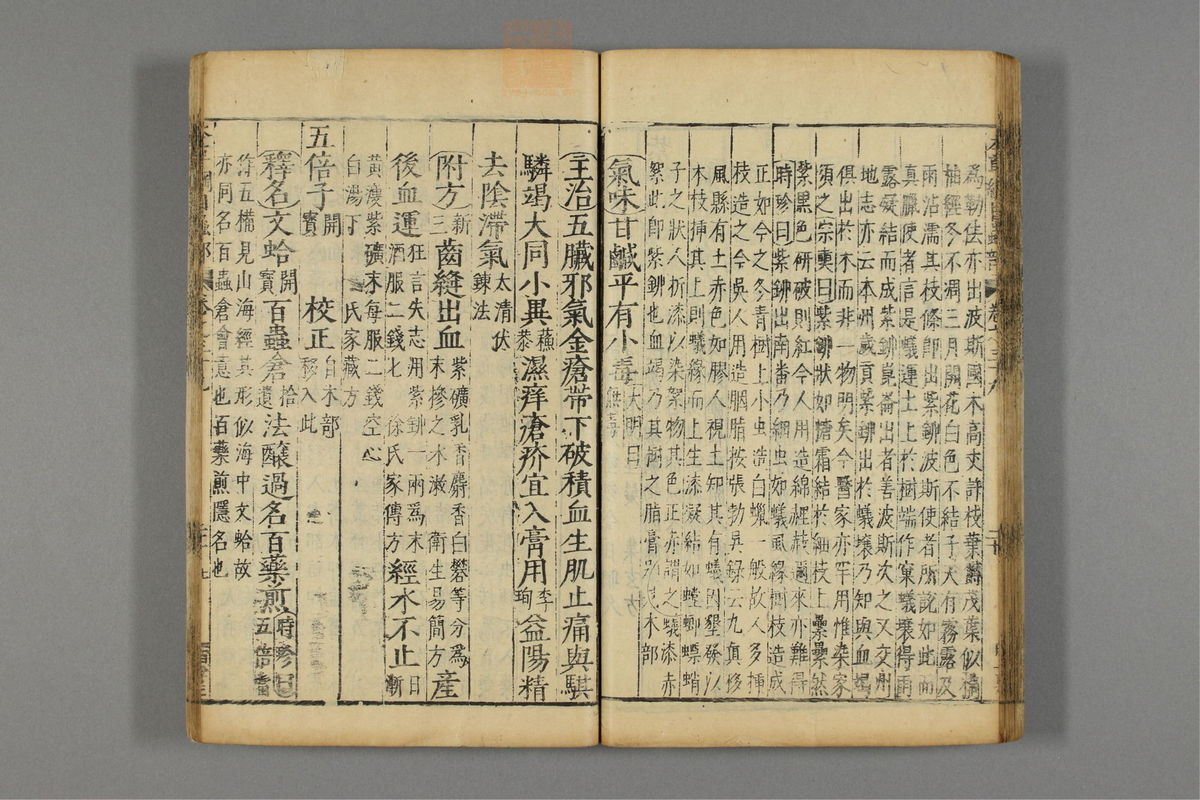 為勒佉亦出波斯國木高丈許枝葉鬱茂葉似橘
柚經冬不凋三月開花白色不結子天有霧露及
雨沾濡其枝條即出紫鉚波斯使者所說如此而
真臘使者言是蟻運土上於樹端作窠蟻壤得雨
露凝結而成紫鉚崑崙出者善波斯次之又交州
地志亦云本州歲貢紫鉚出於蟻壤乃知與血竭
俱出於木而非一物明矣今醫家亦罕用惟染家
須之宗奭曰紫鉚狀如糖霜結於細枝上纍纍然
紫黑色研破則紅今人用造綿𦈛枝邇來亦難得
時珍曰紫鉚出南番乃細虫如蟻虱緣樹枝造成
正如今之冬青樹上小虫造白蠟一般故人多插
枝造之今吳人用造胭脂按張勃吳録云九真移
風縣有土赤色如膠人視土知其有蟻因墾發以
木枝插其上則蟻緣而上生漆凝結如螳螂螵蛸
子之狀人折漆以染絮物其色正赤謂之蟻漆赤
絮此即紫鉚也血竭乃其樹之脂膏別見木部
氣味甘鹹平有小毒大明曰無毒
主治五臟邪氣金瘡帶下破積血生肌止痛與騏
驎竭大同小異蘇恭濕痒瘡疥宜入膏用李珣益陽精
去陰滯氣太清伏鍊法
附方新三齒縫出血紫礦乳香麝香白礬等分為末摻之水漱衛生易簡方產
後血運狂言失志用紫鉚一兩為末酒服二錢匕徐氏家傳方經水不止日漸
黃瘦紫礦末每服二錢空心白湯下氏家藏方
五倍子開寶校正自木部移入此
釋名文蛤開寶百蟲倉拾遺法釀過名百藥煎時珍曰五倍當
作五㯌見山海經其形似海中文蛤故
亦同名百蟲倉會意也百藥煎隱名也